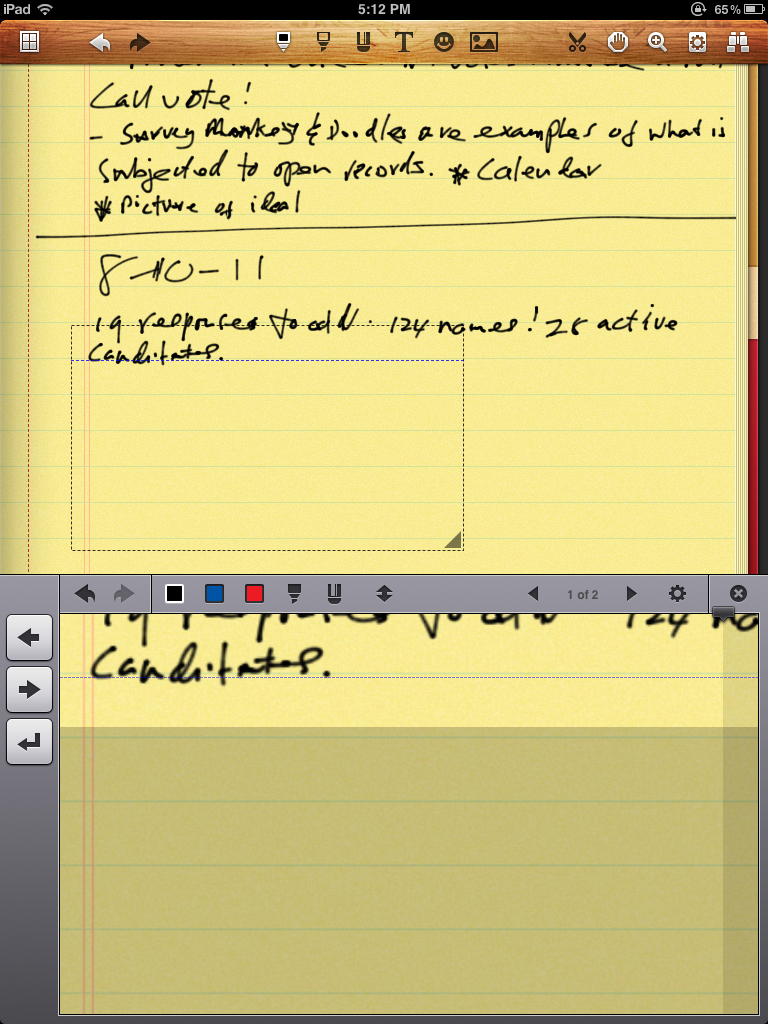 iPad 5:12 PM 65%
T
Call vote!
- Survey Monkey & Doodles are examples of what is
Subjected to open records. * Calendar
* Picture of ideal
8-10-11
19 responses to ad. 124 names! 28 active
Canditates.
1 of 2
19 responses to ad 124 na
Canditates.